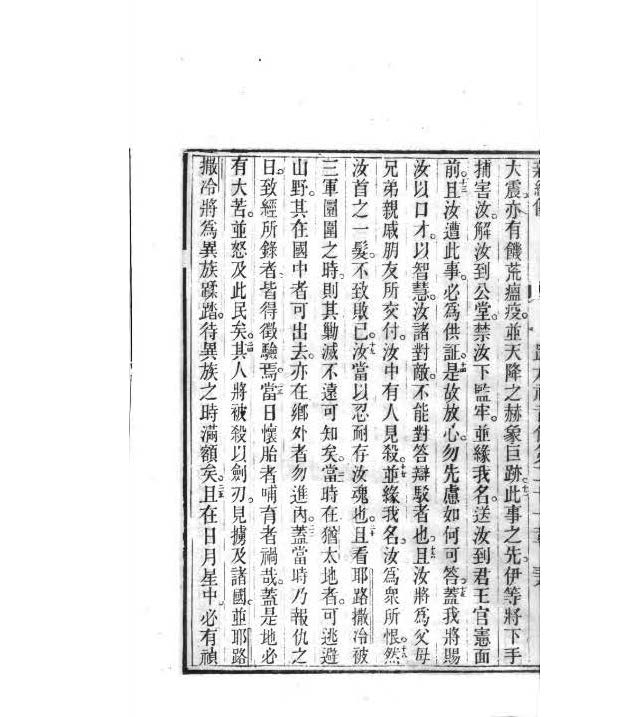 大震亦有饑荒瘟疫。並天降之赫象巨跡。此事之先。伊等將下手
捕害汝。解汝到公堂。禁汝下監牢。並緣我名。送汝到君王官憲面
前。且汝遭此事。必爲供証。是故放心。勿先慮如何可答。蓋我將賜
汝以口才。以智慧。汝諸對敵。不能對答辯駁者也。且汝將爲父母
兄弟親戚朋友所交付。汝中有人見殺。並緣我名。汝爲衆所恨。然
汝首之一髮。不致敗已。汝當以忍耐存汝魂也。且看耶路撒冷被
三軍圍圍之時。則其勦滅不遠可知矣。當時在猶太地者。可逃避
山野。其在國中者可出去。亦在鄉外者勿進內。蓋當時乃報仇之
日。致經所錄者。皆得徵驗焉。當日懷胎者哺有者禍哉。蓋是地必
有大苦。並怒及此民矣。其人將被殺以劍刃。見擄及諸國。並耶路
撒冷將爲異族蹂踏。待異族之時滿額矣。且在日月星中必有禎